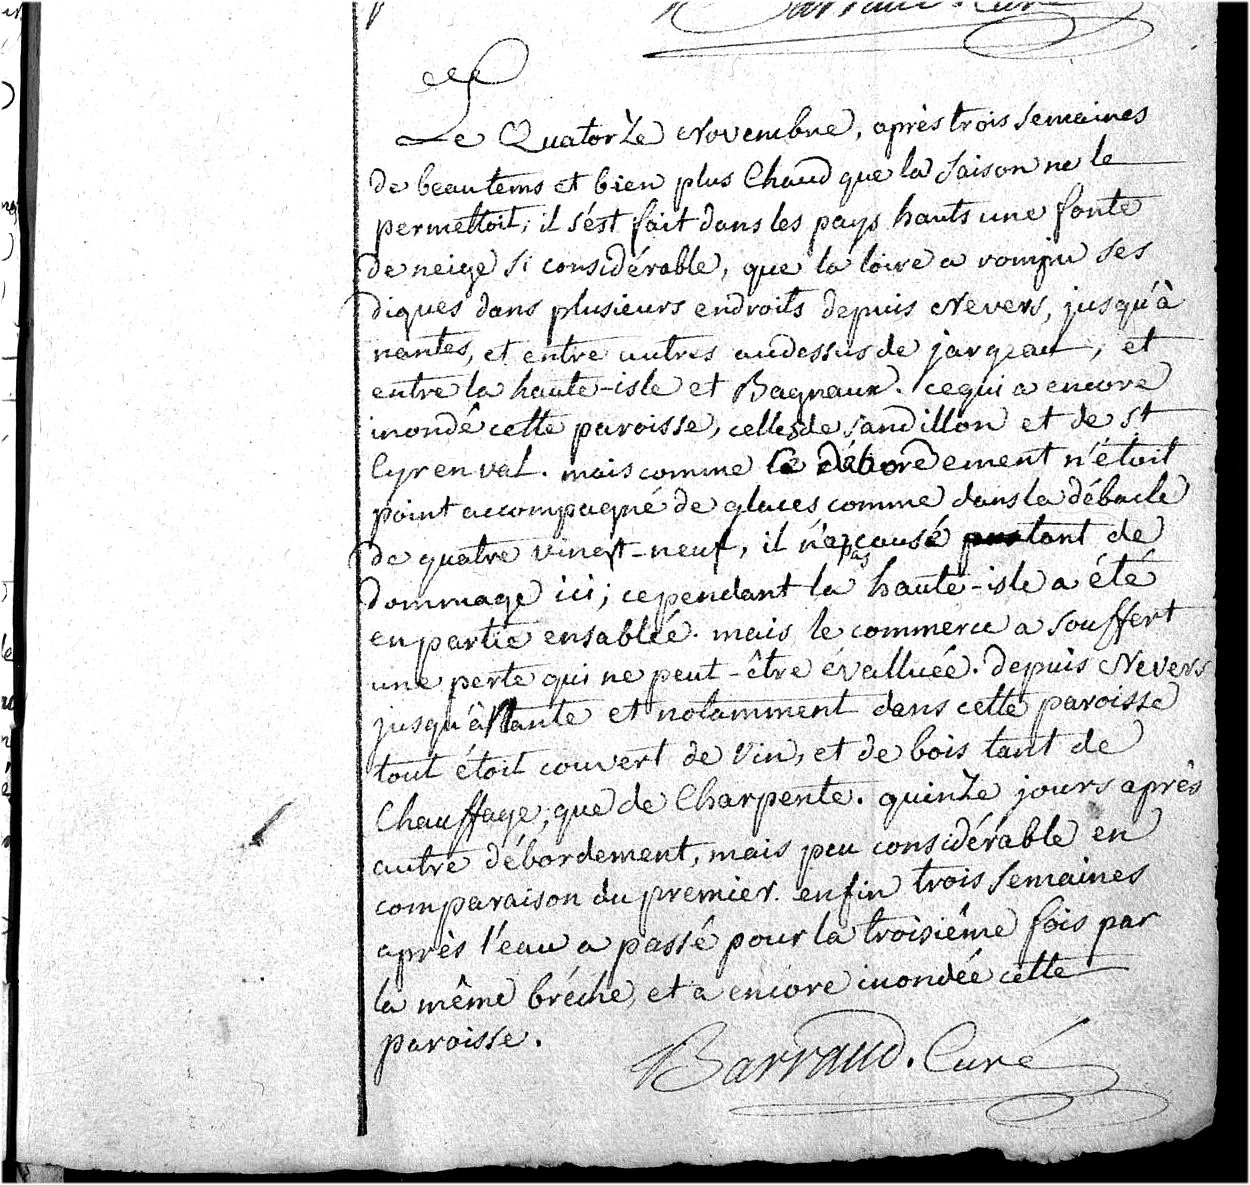 Barraud. Curé
Le Quatorze Novembre, après trois semaines
de beau tems et bien plus Chaud que la Saison ne le
permettoit; il s'est fait dans les pays hauts une fonte
de neige si considérable, que la loire a rompu ses
digues dans plusieurs endroits depuis Nevers, jusqu'à
nantes, et entre autres audessus de jargeau, et
entre la haute-isle et Bagneaux. ce qui a encore
inondé cette paroisse, celles de sandillon et de st
Cyr en val. mais comme ce débordement n'étoit
point accompagné de glaces comme dans la débacle
de quatre vingt-neuf, il n'a pas causé tant de
dommage ici; cependant la haute-isle a été
en partie ensablée. mais le commerce a souffert
une perte qui ne peut-être évalluée. depuis Nevers
jusqu'à Nante et notamment dans cette paroisse
tout étoit couvert de vin, et de bois tant de
Chauffage, que de Charpente. quinze jours après
autre débordement, mais peu considérable en
comparaison du premier. enfin trois semaines
après l'eau a passé pour la troisiême fois par
la même brêche, et a encore inondée cette
paroisse.
Barraud. Curé